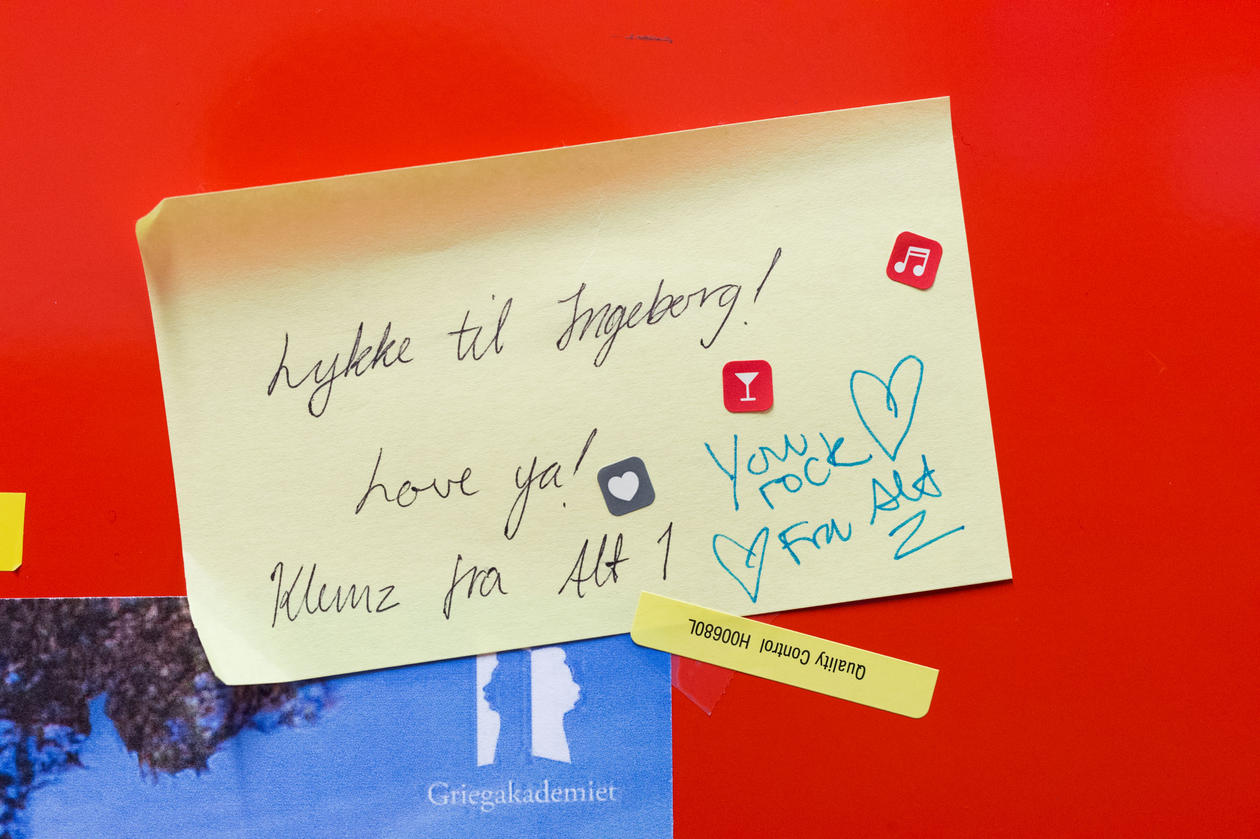 Lykke til Ingeborg!
Love ya!
Klemz fra Alt 1
You
rock
Fra Alt
2
Quality Control H00680L
Griegakademiet